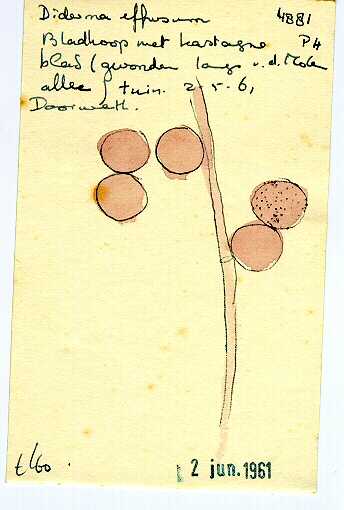 Diderma effusum 4881
Bladhoop met kastagne P4
blad (gevonden langs v.d. Molen
allee) tuin. 2-5-61
Doorwerth.
t/60.
2 jun. 1961